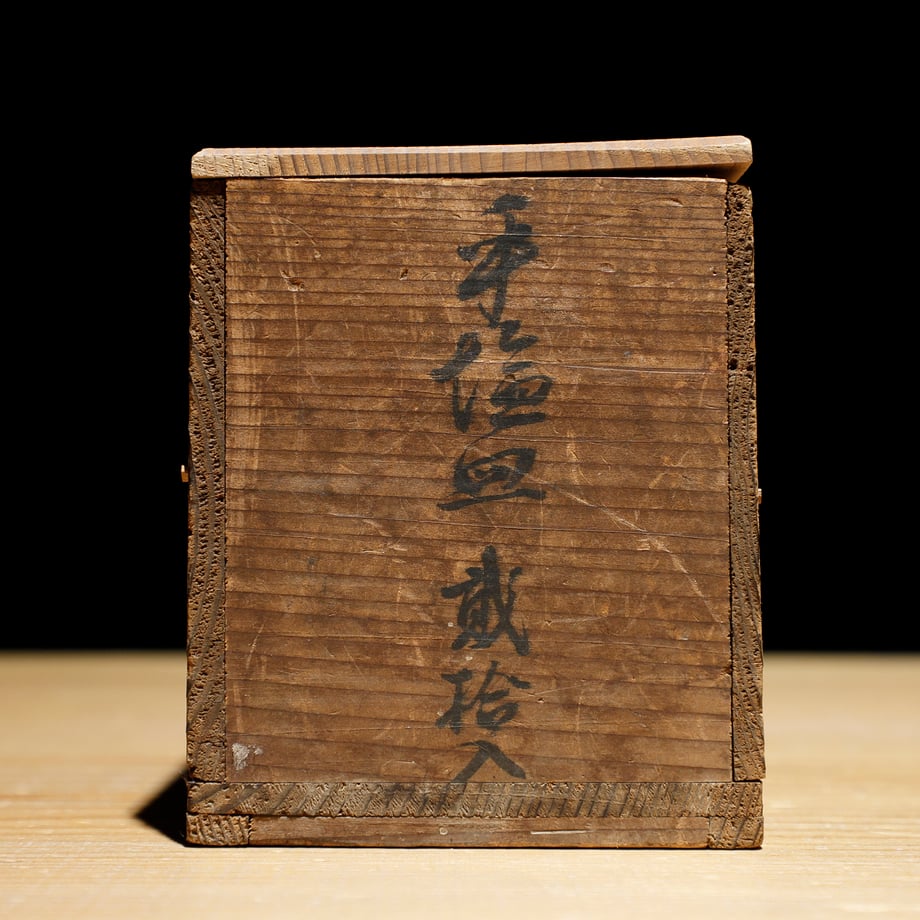 手塩皿 貳拾入